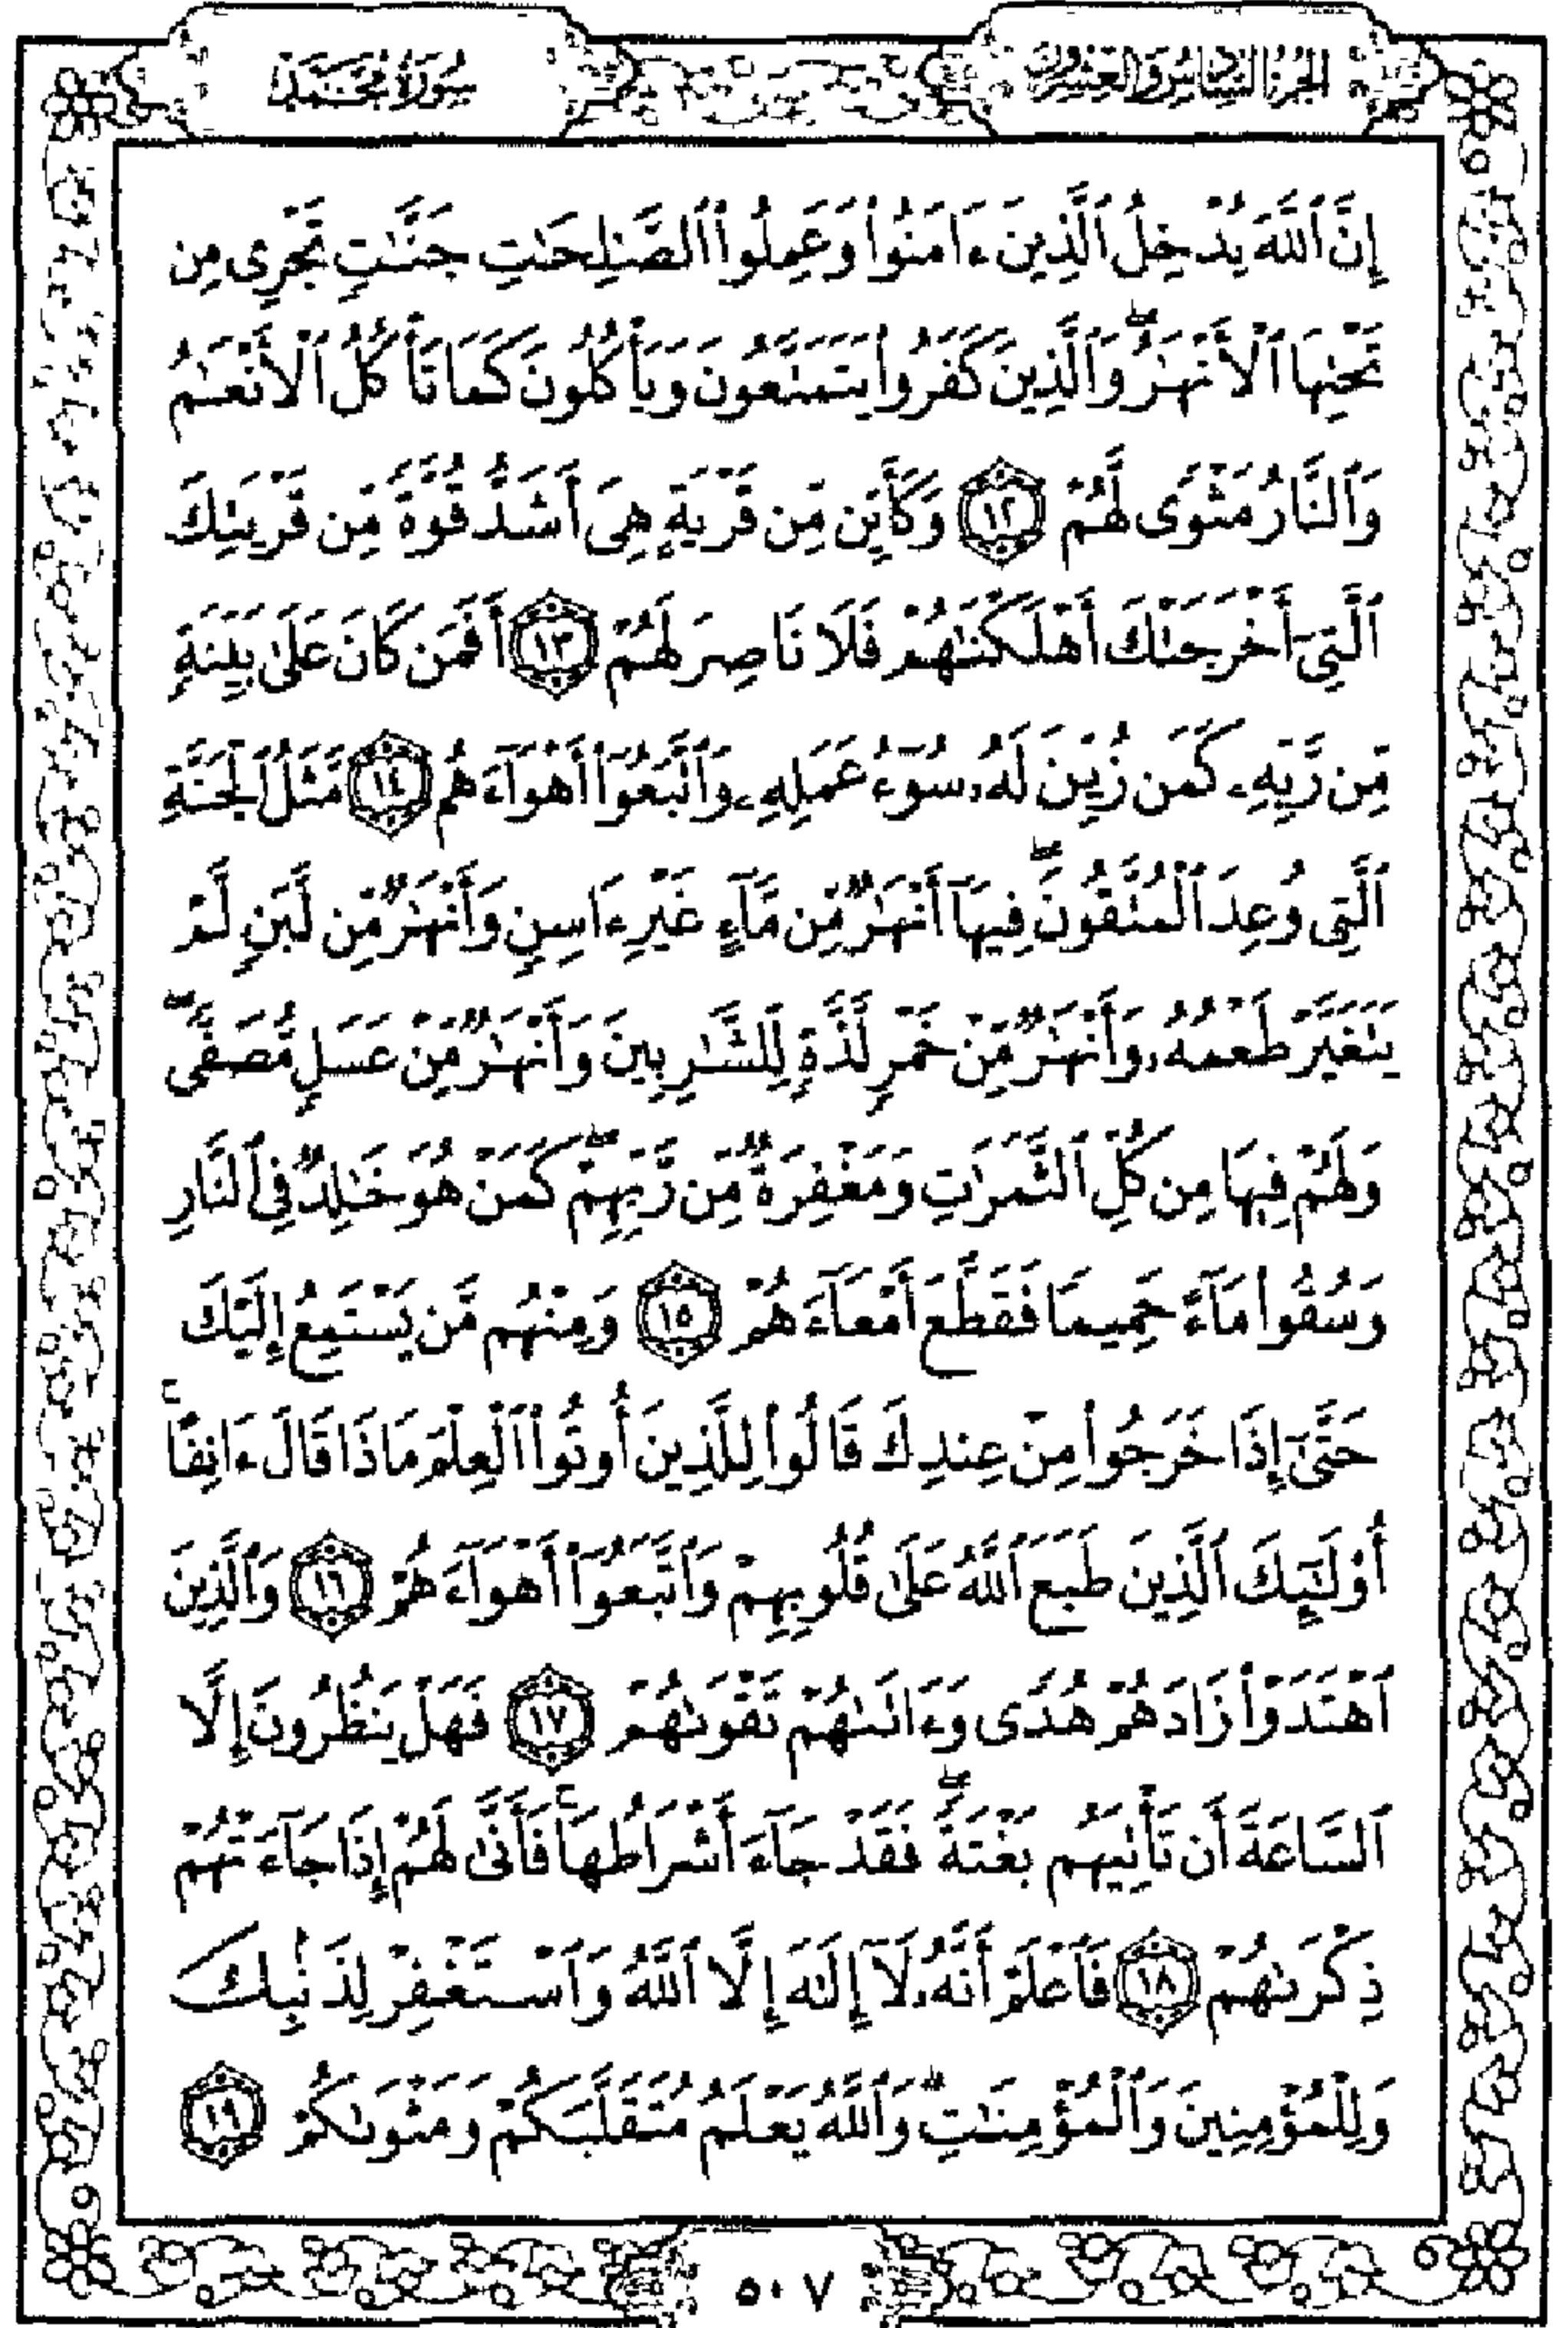 الجزء السادس والعشرون
سورة محمد
إِنَّ ٱللَّهَ يُدْخِلُ ٱلَّذِينَ ءَامَنُوا۟ وَعَمِلُوا۟ ٱلصَّـٰلِحَـٰتِ جَنَّـٰتٍ تَجْرِى مِن
تَحْتِهَا ٱلْأَنْهَـٰرُ ۖ وَٱلَّذِينَ كَفَرُوا۟ يَتَمَتَّعُونَ وَيَأْكُلُونَ كَمَا تَأْكُلُ ٱلْأَنْعَـٰمُ
وَٱلنَّارُ مَثْوًى لَّهُمْ ١٢ وَكَأَيِّن مِّن قَرْيَةٍ هِىَ أَشَدُّ قُوَّةً مِّن قَرْيَتِكَ
ٱلَّتِىٓ أَخْرَجَتْكَ أَهْلَكْنَـٰهُمْ فَلَا نَاصِرَ لَهُمْ ١٣ أَفَمَن كَانَ عَلَىٰ بَيِّنَةٍ
مِّن رَّبِّهِۦ كَمَن زُيِّنَ لَهُۥ سُوٓءُ عَمَلِهِۦ وَٱتَّبَعُوٓا۟ أَهْوَآءَهُم ١٤ مَّثَلُ ٱلْجَنَّةِ
ٱلَّتِى وُعِدَ ٱلْمُتَّقُونَ ۖ فِيهَآ أَنْهَـٰرٌ مِّن مَّآءٍ غَيْرِ ءَاسِنٍ وَأَنْهَـٰرٌ مِّن لَّبَنٍ لَّمْ
يَتَغَيَّرْ طَعْمُهُۥ وَأَنْهَـٰرٌ مِّنْ خَمْرٍ لَّذَّةٍ لِّلشَّـٰرِبِينَ وَأَنْهَـٰرٌ مِّنْ عَسَلٍ مُّصَفًّى ۖ
وَلَهُمْ فِيهَا مِن كُلِّ ٱلثَّمَرَٰتِ وَمَغْفِرَةٌ مِّن رَّبِّهِمْ ۖ كَمَنْ هُوَ خَـٰلِدٌ فِى ٱلنَّارِ
وَسُقُوا۟ مَآءً حَمِيمًا فَقَطَّعَ أَمْعَآءَهُمْ ١٥ وَمِنْهُم مَّن يَسْتَمِعُ إِلَيْكَ
حَتَّىٰٓ إِذَا خَرَجُوا۟ مِنْ عِندِكَ قَالُوا۟ لِلَّذِينَ أُوتُوا۟ ٱلْعِلْمَ مَاذَا قَالَ ءَانِفًا ۚ
أُو۟لَـٰٓئِكَ ٱلَّذِينَ طَبَعَ ٱللَّهُ عَلَىٰ قُلُوبِهِمْ وَٱتَّبَعُوٓا۟ أَهْوَآءَهُمْ ١٦ وَٱلَّذِينَ
ٱهْتَدَوْا۟ زَادَهُمْ هُدًى وَءَاتَىٰهُمْ تَقْوَىٰهُمْ ١٧ فَهَلْ يَنظُرُونَ إِلَّا
ٱلسَّاعَةَ أَن تَأْتِيَهُم بَغْتَةً ۖ فَقَدْ جَآءَ أَشْرَاطُهَا ۚ فَأَنَّىٰ لَهُمْ إِذَا جَآءَتْهُمْ
ذِكْرَىٰهُمْ ١٨ فَٱعْلَمْ أَنَّهُۥ لَآ إِلَـٰهَ إِلَّا ٱللَّهُ وَٱسْتَغْفِرْ لِذَنۢبِكَ
وَلِلْمُؤْمِنِينَ وَٱلْمُؤْمِنَـٰتِ ۗ وَٱللَّهُ يَعْلَمُ مُتَقَلَّبَكُمْ وَمَثْوَىٰكُمْ ١٩
٥٠٧